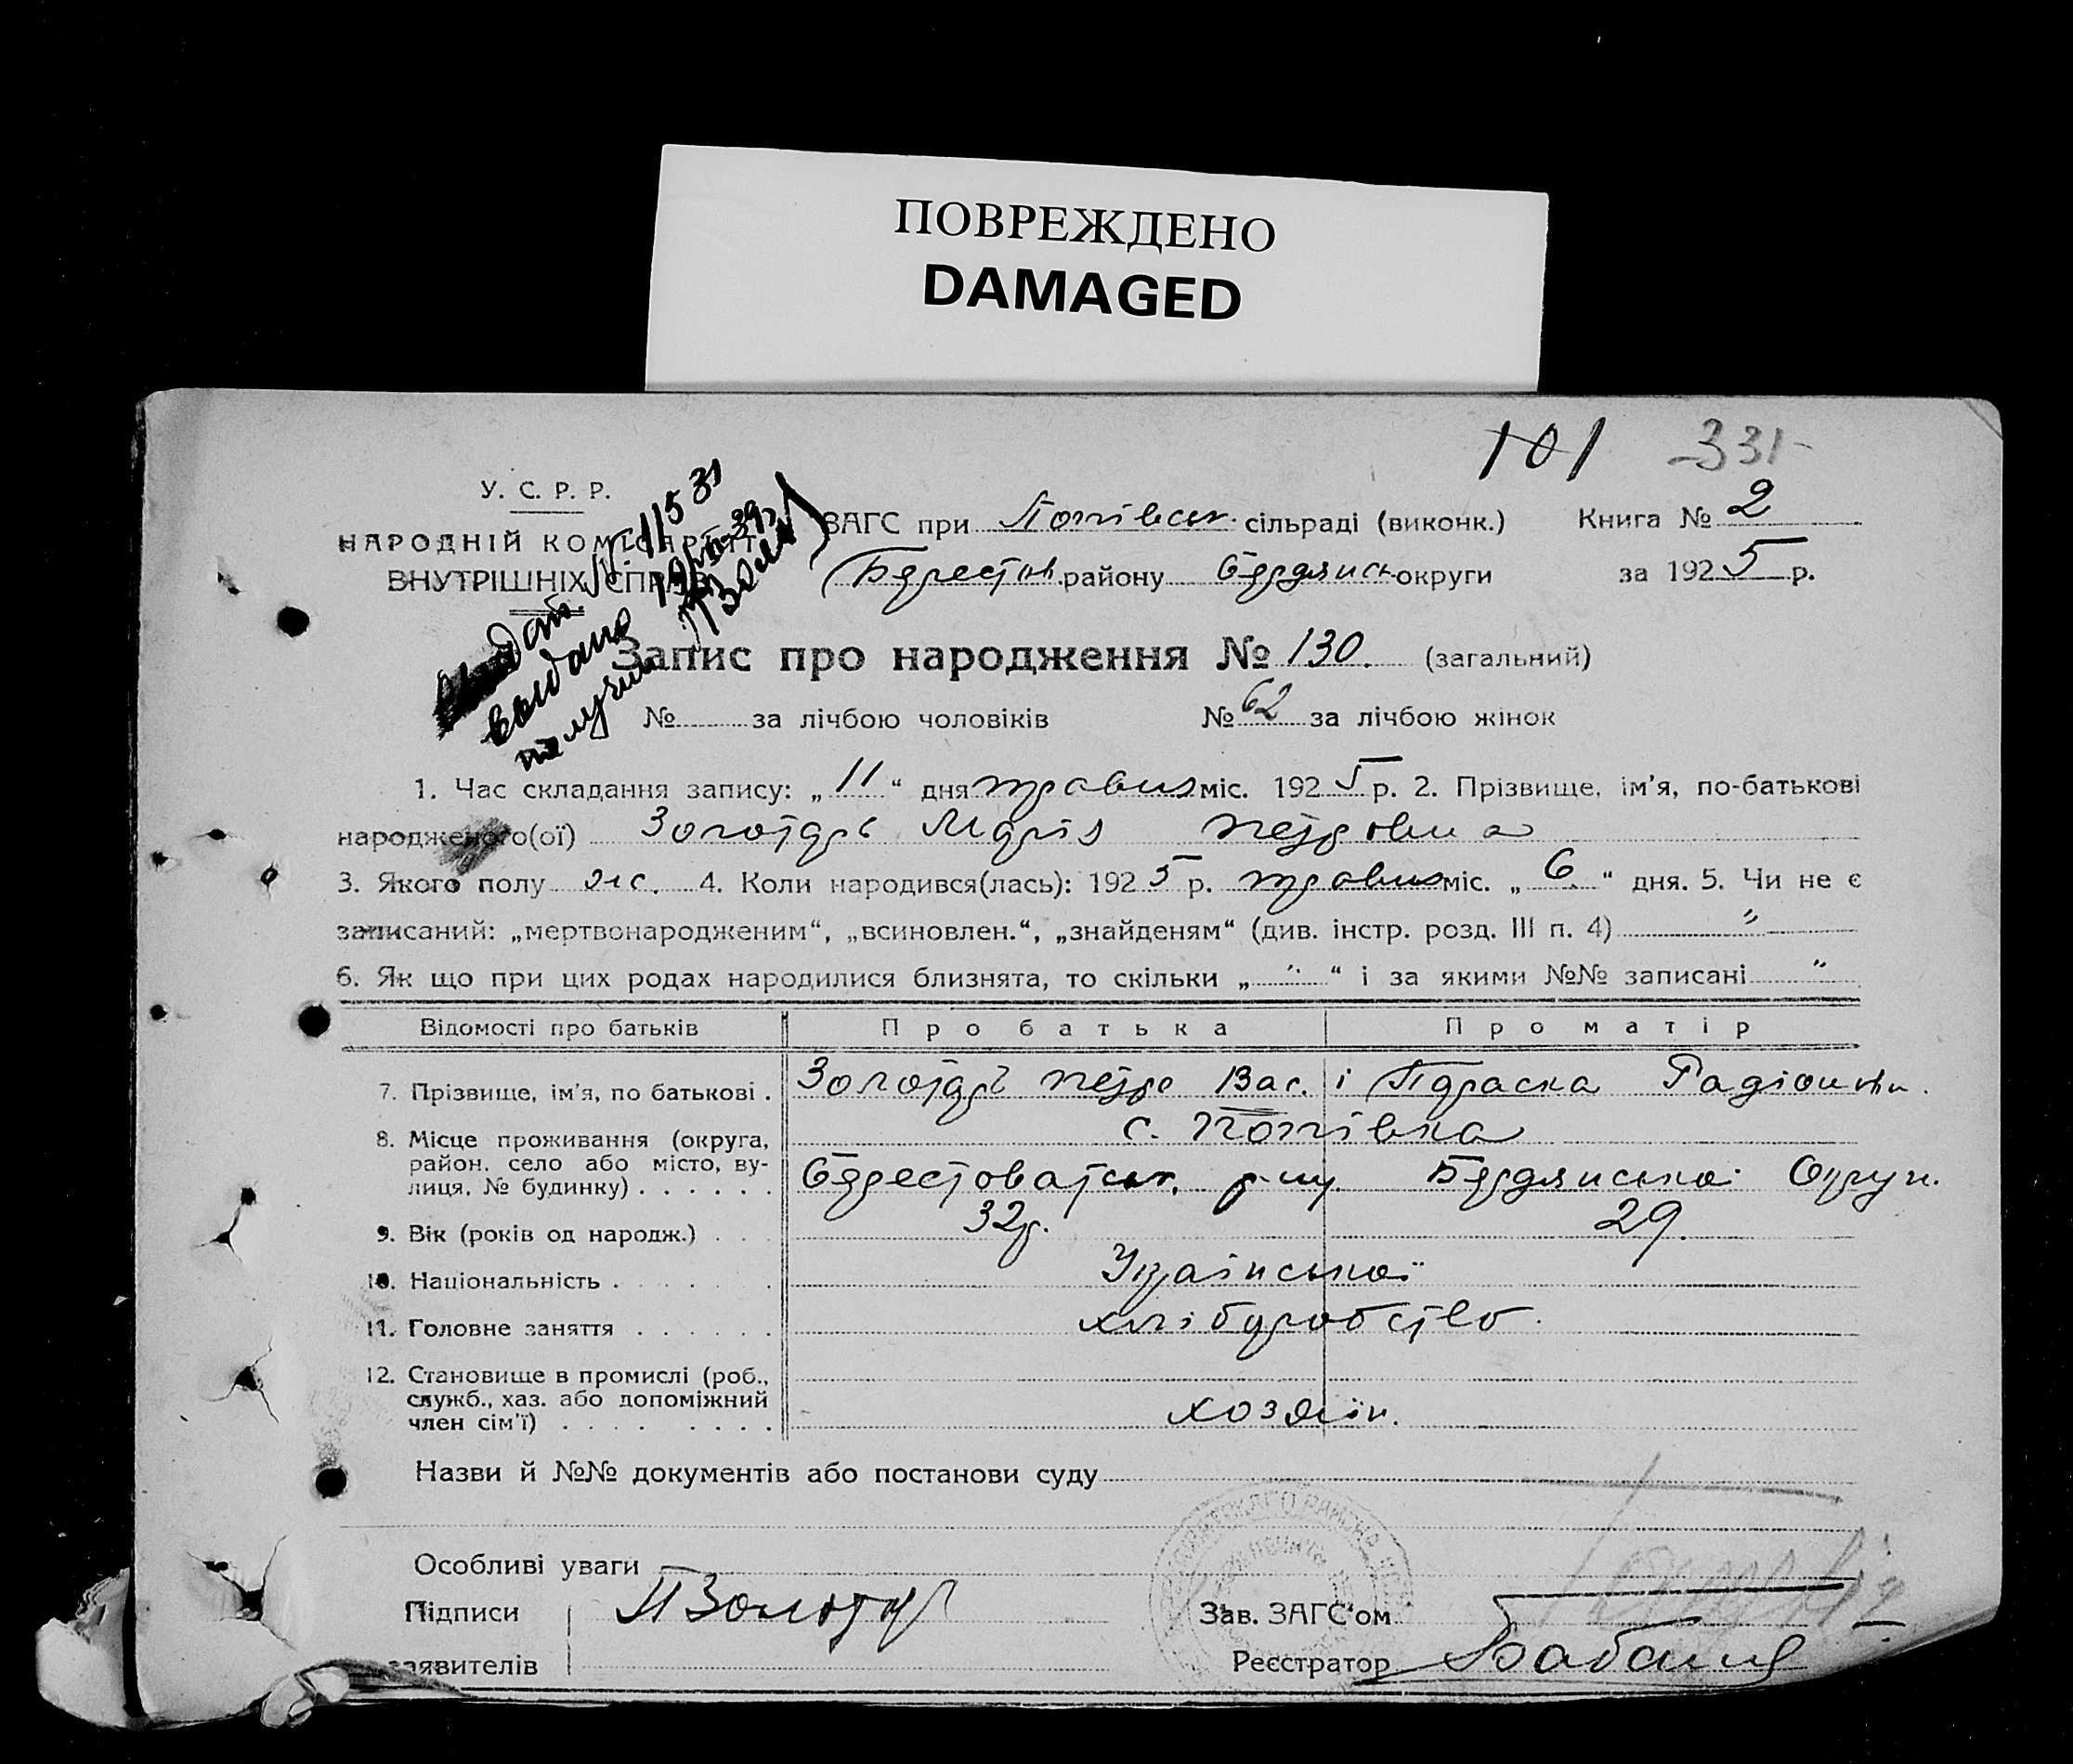 ПОВРЕЖДЕНО
DAMAGED
101 -331-
У. С. Р. Р.
НАРОДНІЙ КОМІСАРІЯТ
ВНУТРІШНІХ СПРАВ
выдано
получил
ЗАГС при Попівськ. сільраді (виконк.) Книга № 2
Берестов. району Бердянськ округи за 1925 р.
Запис про народження № 130. (загальний)
№ за лічбою чоловіків № 62 за лічбою жінок
1. Час складання запису: „11“ дня травня міс. 1925 р. 2. Прізвище, ім’я, по-батькові
народженого(ої) Золотарь Марія Петровна
3. Якого полу ж. 4. Коли народився(лась): 1925 р. травня міс. „6.“ дня. 5. Чи не є
записаний: „мертвонародженим“, „всиновлен.“, „знайденям“ (див. інстр. розд. III п. 4) "
6. Як що при цих родах народилися близнята, то скільки „ " “ і за якими №№ записані "
Відомості про батьків Про батька Про матір
7. Прізвище, ім’я, по батькові . Золотарь Петро Вас. і Параска Радіоновн.
8. Місце проживання (округа, район, село або місто, ву-
лиця, № будинку) . . . . . . с. Попівка
Берестоватськ. р-ну Бердянської Округ.
9. Вік (років од народж.) . . . 32р. 29.
10. Національність . . . . . Української
11. Головне заняття . . . . . . хліборобство.
12. Становище в промислі (роб.,
служб., хаз. або допоміжний
член сім’ї) . . . . . . . . хозяїн.
Назви й №№ документів або постанови суду
Особливі уваги
Підписи ПЗолотар Зав. ЗАГС‘ом
заявителів Реєстратор